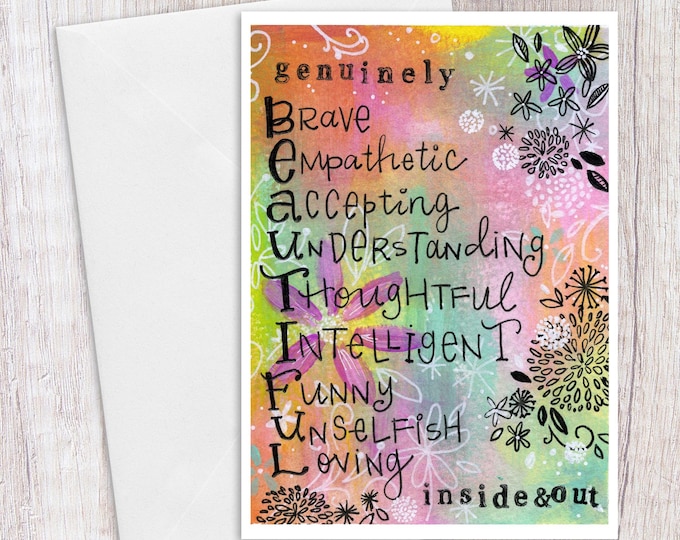 genuinely
BRAVE
Empathetic
accepting
UNDERSTANDING
THOUGHTFUL
INTELLIGENT
FUNNY
UNSELFISH
LOVING
inside&out